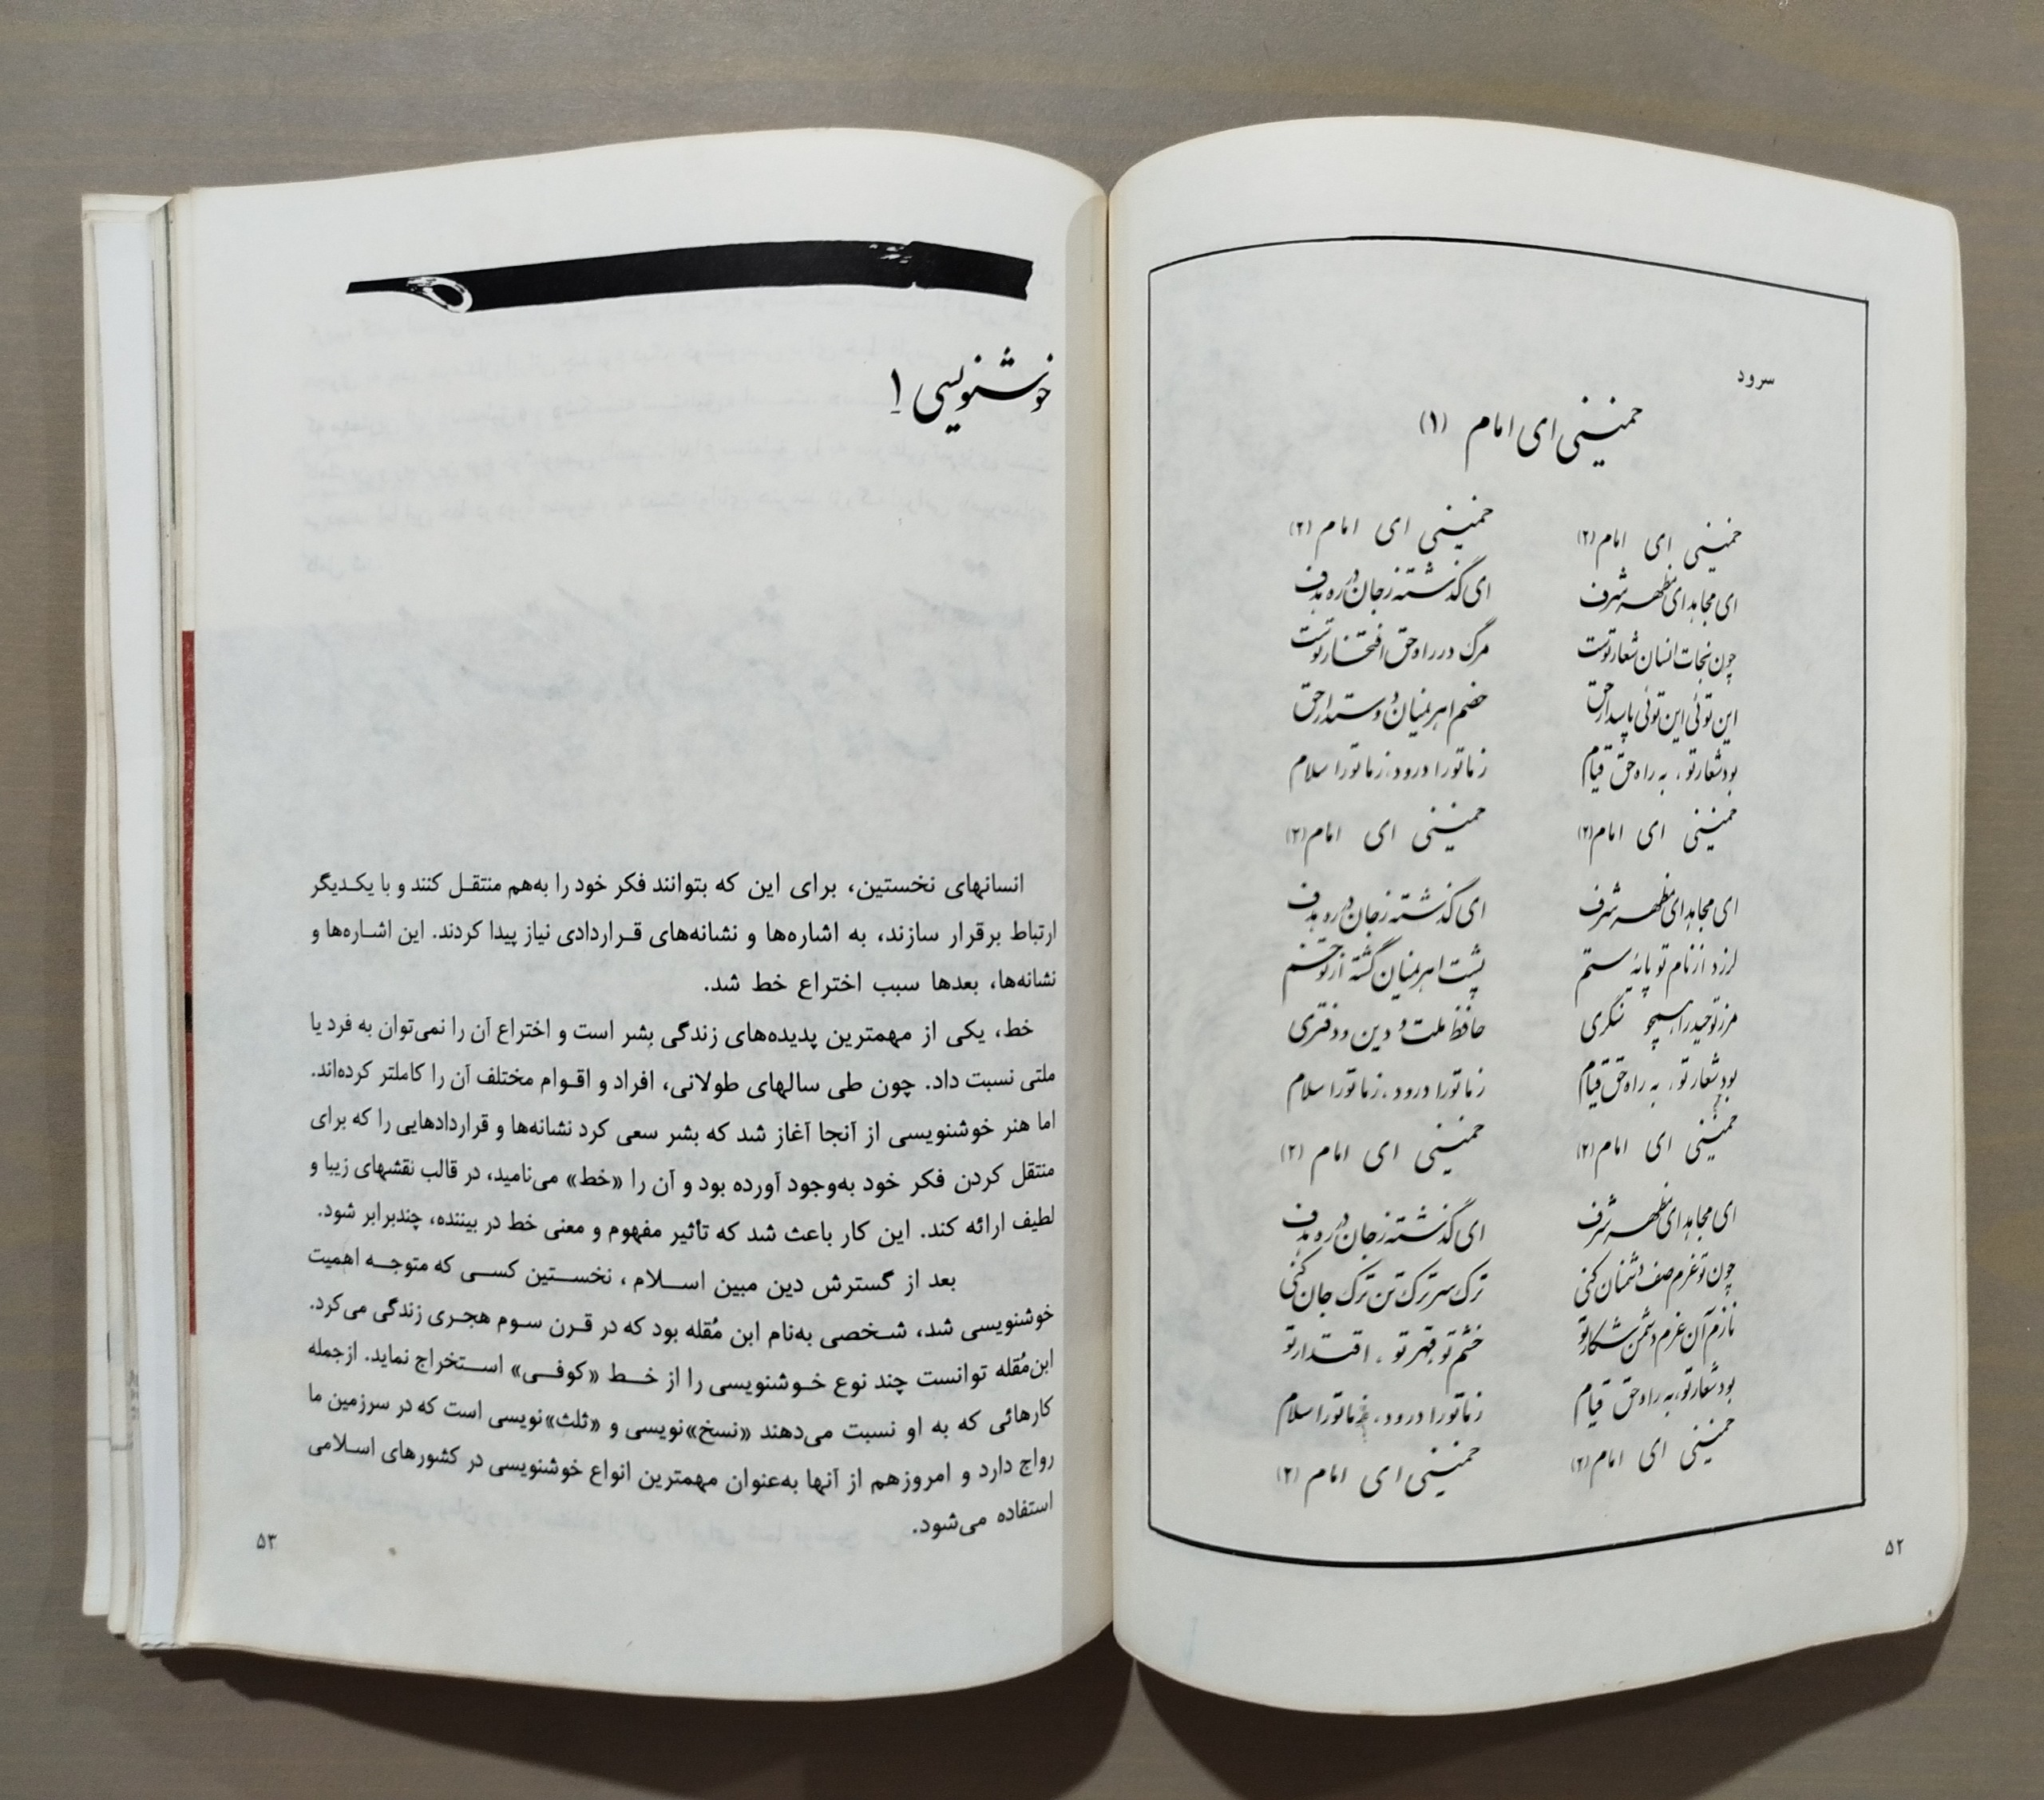 سرود
خمینی ای امام (۱)
خمینی ای امام (۲) خمینی ای امام (۲)
ای مجاهد ای مظهر شرف ای گذشته ز جان در ره هدف
چون نجات انسان شعار توست مرگ در راه حق افتخار توست
این توئی این توئی پاسدار حق خصم اهریمنان دوستدار حق
بود شعار تو، به راه حق قیام ز ما تو را درود، ز ما تو را سلام
خمینی ای امام (۲) خمینی ای امام (۲)
ای مجاهد ای مظهر شرف ای گذشته ز جان در ره هدف
لرزد از نام تو پایهٔ ستم پشت اهریمنان گشته از تو خم
مرز توحید را همچو سنگری حافظ ملت و دین و دفتری
بود شعار تو، به راه حق قیام ز ما تو را درود، ز ما تو را سلام
خمینی ای امام (۲) خمینی ای امام (۲)
ای مجاهد ای مظهر شرف ای گذشته ز جان در ره هدف
چون تو عزم صف دشمنان کنی ترک سر ترک تن ترک جان کنی
نازم آن عزم دشمن شکار تو خشم تو، قهر تو، اقتدار تو
بود شعار تو، به راه حق قیام ز ما تو را درود، ز ما تو را سلام
خمینی ای امام (۲) خمینی ای امام (۲)
۵۲
خوشنویسی ۱
انسانهای نخستین، برای این که بتوانند فکر خود را به‌هم منتقل کنند و با یکدیگر
ارتباط برقرار سازند، به اشاره‌ها و نشانه‌های قراردادی نیاز پیدا کردند. این اشاره‌ها و
نشانه‌ها، بعدها سبب اختراع خط شد.
خط، یکی از مهمترین پدیده‌های زندگی بشر است و اختراع آن را نمی‌توان به فرد یا
ملتی نسبت داد. چون طی سالهای طولانی، افراد و اقوام مختلف آن را کاملتر کرده‌اند.
اما هنر خوشنویسی از آنجا آغاز شد که بشر سعی کرد نشانه‌ها و قراردادهایی را که برای
منتقل کردن فکر خود به‌وجود آورده بود و آن را «خط» می‌نامید، در قالب نقشهای زیبا و
لطیف ارائه کند. این کار باعث شد که تأثیر مفهوم و معنی خط در بیننده، چندبرابر شود.
بعد از گسترش دین مبین اسلام، نخستین کسی که متوجه اهمیت
خوشنویسی شد، شخصی به‌نام ابن مُقله بود که در قرن سوم هجری زندگی می‌کرد.
ابن‌مُقله توانست چند نوع خوشنویسی را از خط «کوفی» استخراج نماید. ازجمله
کارهائی که به او نسبت می‌دهند «نسخ»نویسی و «ثلث»نویسی است که در سرزمین ما
رواج دارد و امروزهم از آنها به‌عنوان مهمترین انواع خوشنویسی در کشورهای اسلامی
استفاده می‌شود.
۵۳